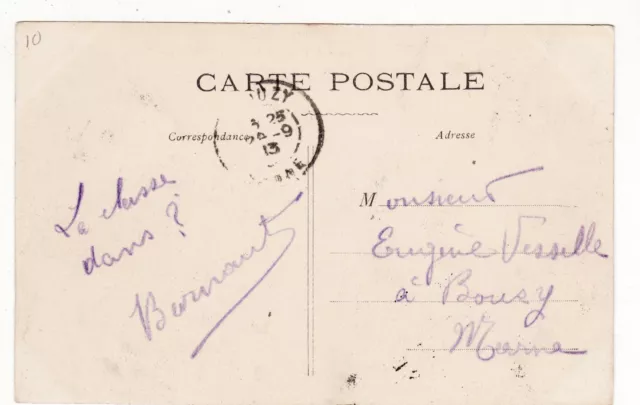 10
CARTE POSTALE
Correspondance
Adresse
OUZY
3 25
-9
13
NE
La classe
dans ?
Monsieur
Eugène Vesselle
à Bouzy
Marne